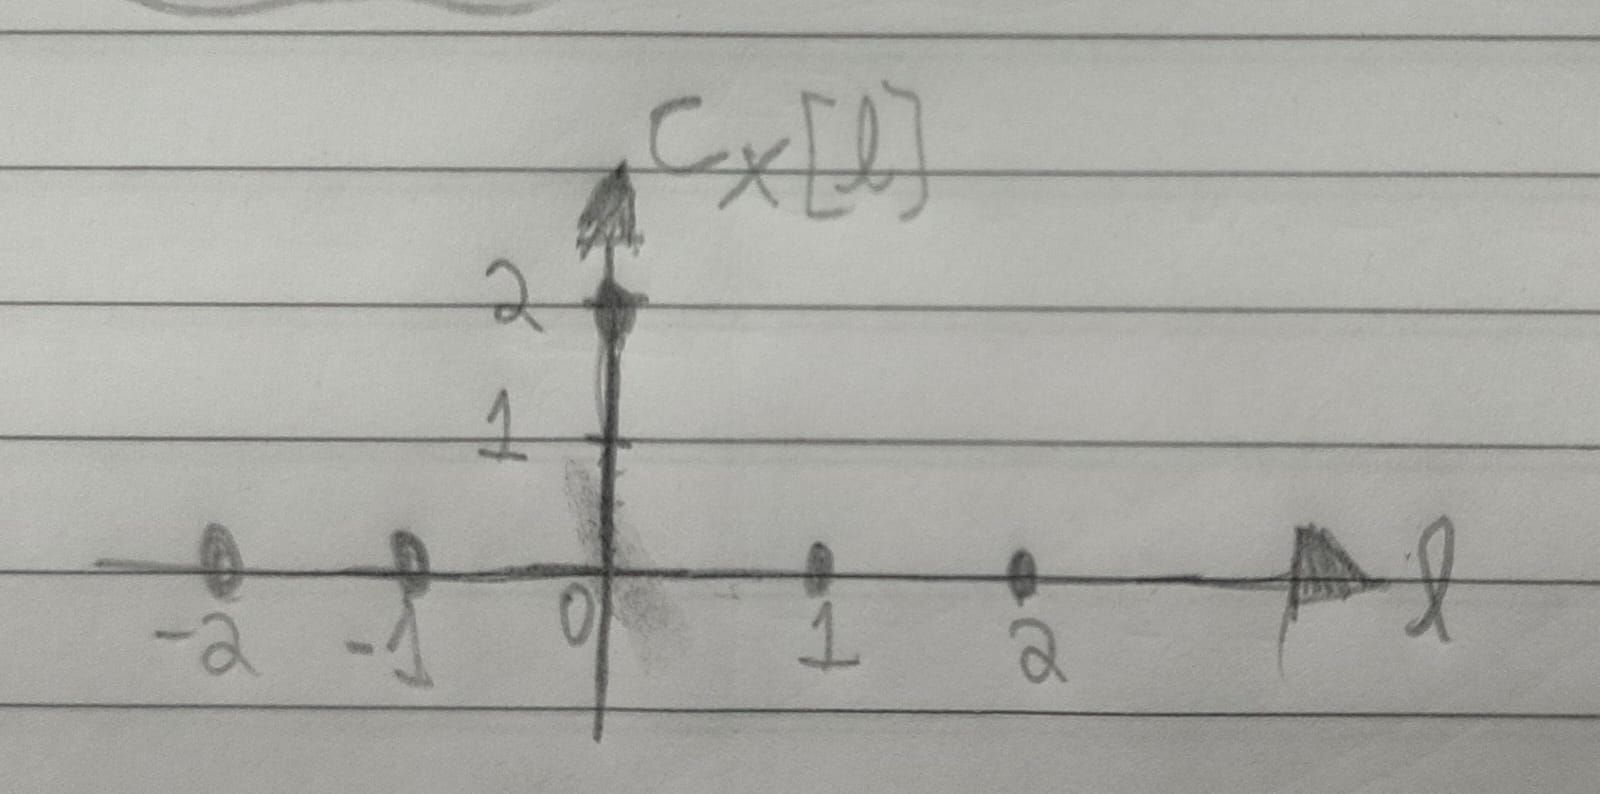 Cx[l]
2
1
-2 -1 0 1 2 l